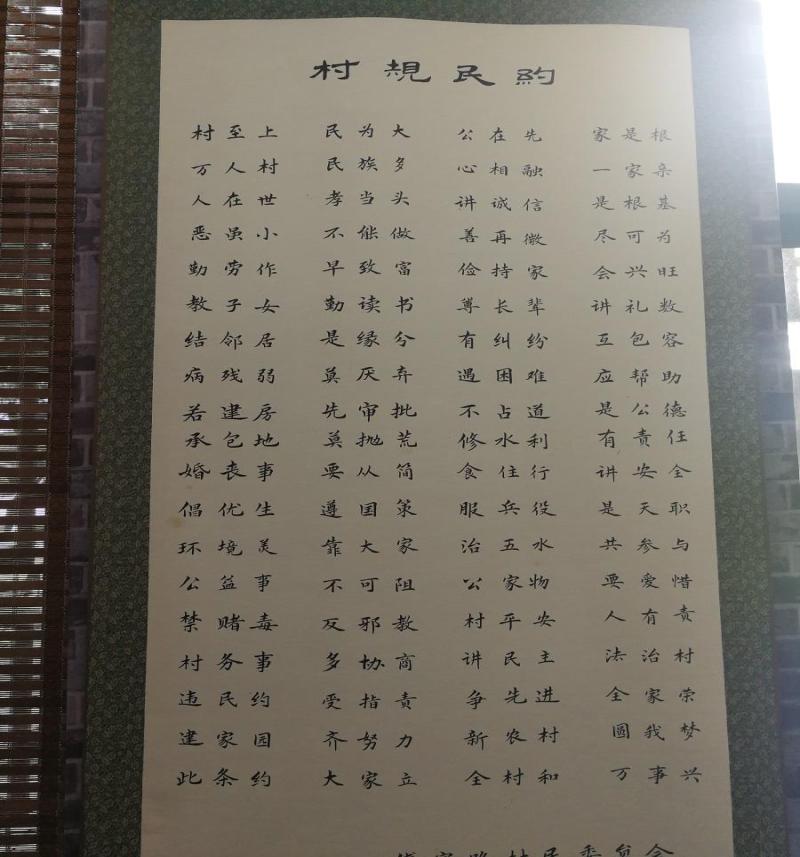 村規民約
村至上 民为大 公在先 家是根
万人村 民族多 心相融 一家亲
人在世 孝当头 讲诚信 是根基
恶虽小 不能做 善再微 尽可为
勤劳作 早致富 俭持家 会兴旺
教子女 勤读书 尊长辈 讲礼数
结邻居 是缘分 有纠纷 互包容
病残弱 莫厌弃 遇困难 应帮助
若建房 先审批 不占道 是公德
承包地 莫抛荒 修水利 有责任
婚丧事 要从简 食住行 讲安全
倡优生 遵国策 服兵役 是天职
环境美 靠大家 治五水 共参与
公益事 不可阻 公家物 要爱惜
禁赌毒 反邪教 村平安 人有责
村务事 多协商 讲民主 法治村
违民约 受指责 争先进 全家荣
建家园 齐努力 新农村 圆我梦
此条约 大家立 全村和 万事兴
村民委员会